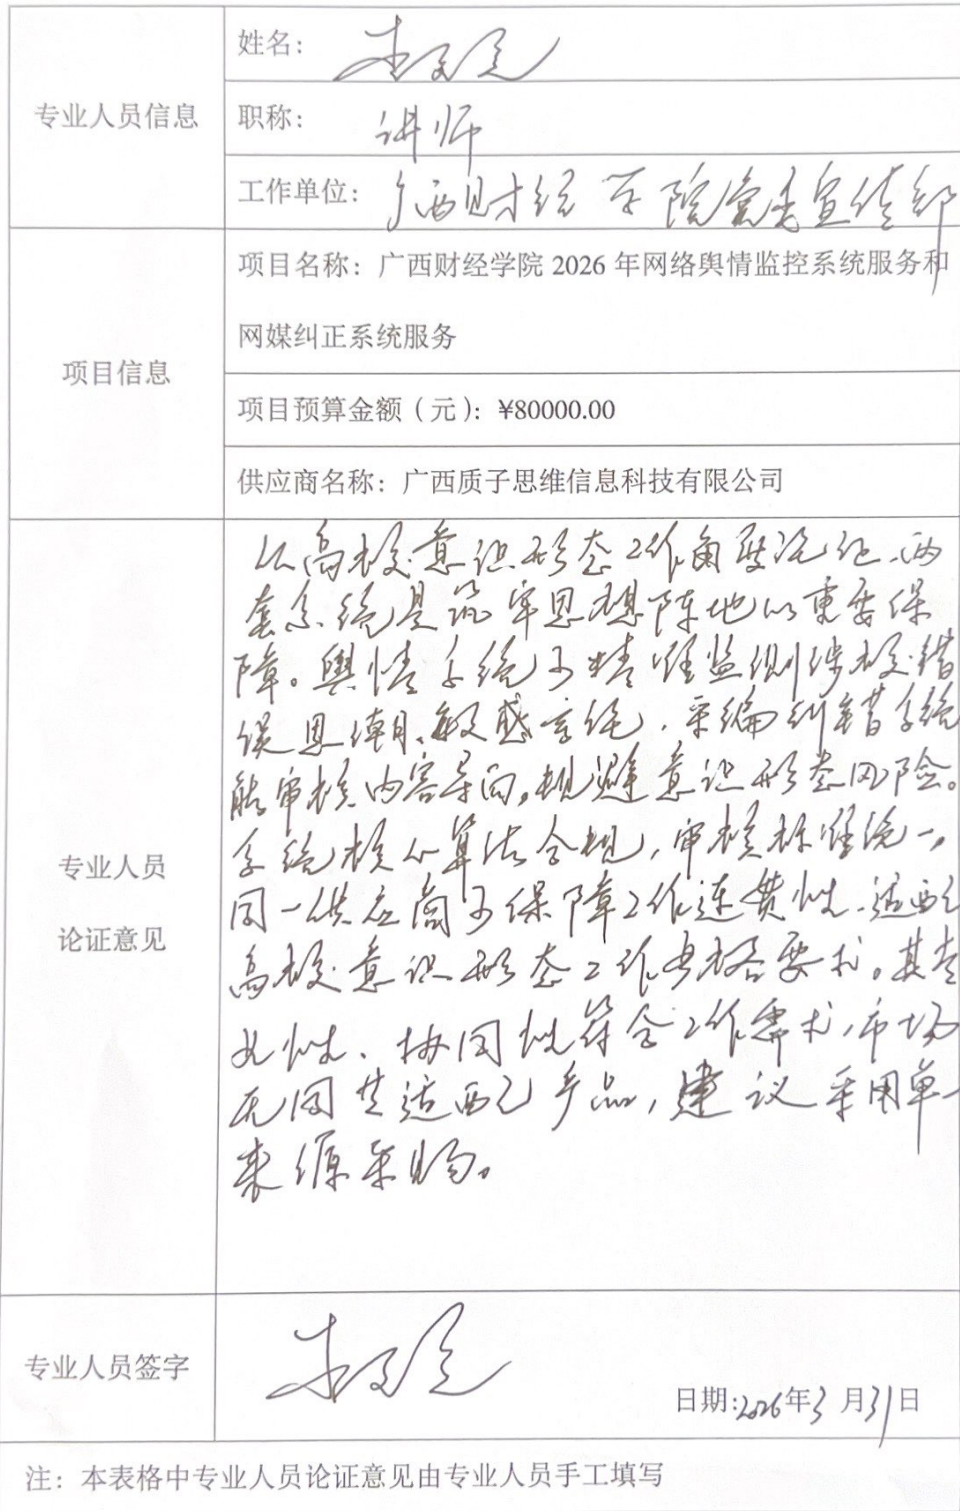 专业人员信息
姓名：
职称：讲师
工作单位：广西财经学院党委宣传部
项目信息
项目名称：广西财经学院 2026 年网络舆情监控系统服务和
网媒纠正系统服务
项目预算金额（元）：¥80000.00
供应商名称：广西质子思维信息科技有限公司
专业人员
论证意见
从高校意识形态工作角度论证、两
套系统是筑牢思想阵地的重要保
障。舆情系统可精准监测涉校错
误思潮、敏感言论，采编纠错系统
能审核内容导向，规避意识形态风险。
系统核心算法合规，审核标准统一，
同一供应商可保障工作连贯性、适配
高校意识形态工作严格要求。其专
业性、协同性符合工作需求，市场
无同类适配产品，建议采用单一
来源采购。
专业人员签字
日期:2026年3月31日
注：本表格中专业人员论证意见由专业人员手工填写